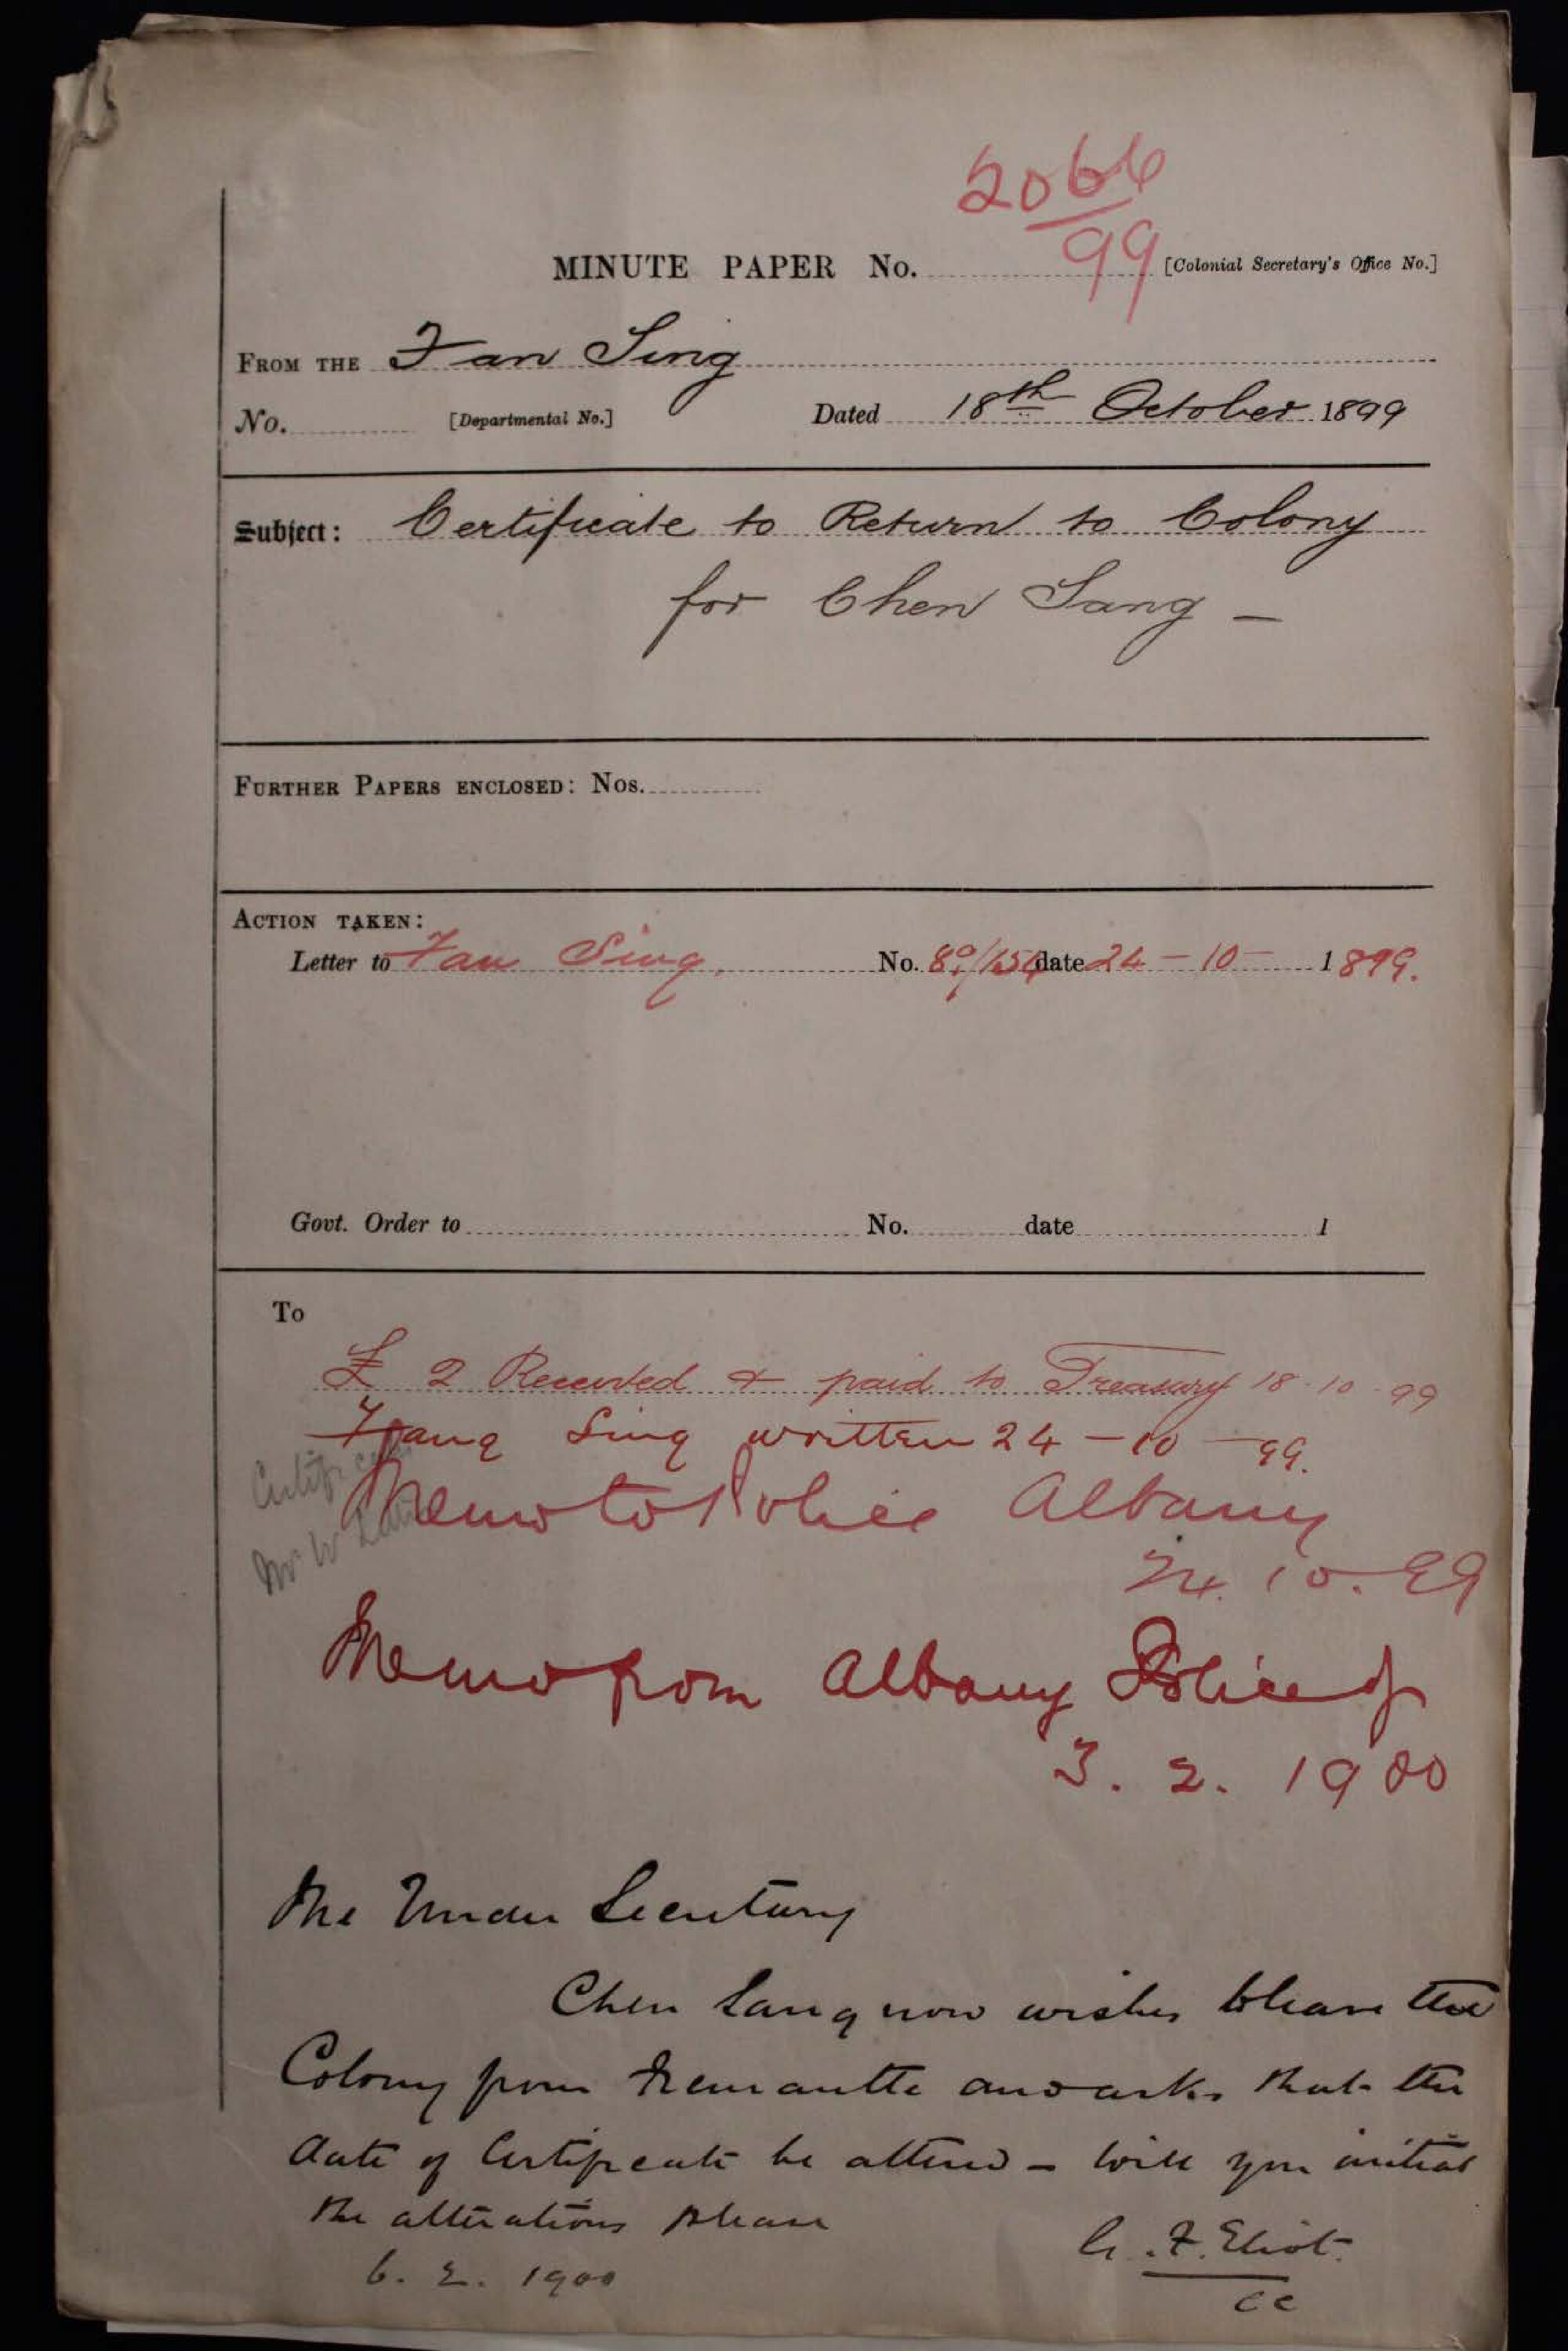 2066
99
MINUTE PAPER No. [Colonial Secretary's Office No.]
FROM THE Fan Sing
No. [Departmental No.] Dated 18th October 1899
Subject: Certificate to Return to Colony
for Chen Sang —
FURTHER PAPERS ENCLOSED: Nos.
ACTION TAKEN:
Letter to Fan Sing. No. date 24 - 10 - 1899.
Govt. Order to No. date 1
To
£ 2 Received & paid to Treasury 18-10-99
Sing written 24 - 10 - 99.
Certificate
Memo to Police Albany
Mr W
24.10.99
Memo from Albany Police of
3. 2. 1900
The Under Secretary
Chen Sang now wishes to leave the
Colony from Fremantle and asks that the
date of Certificate be altered - will you initial
the alterations please
G. F. Eliot.
6. 2. 1900